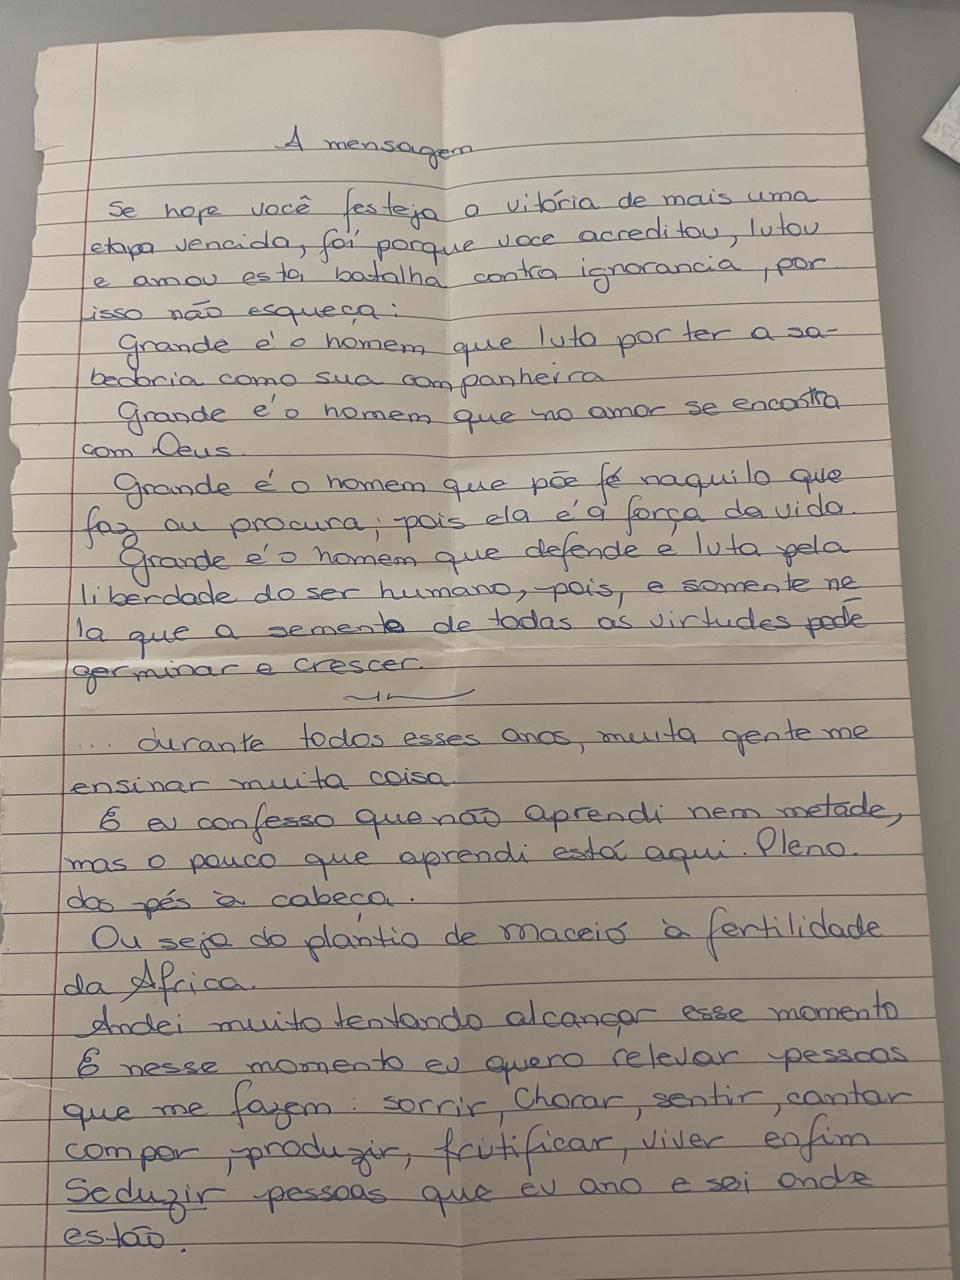 A mensagem
Se hoje você festeja a vitória de mais uma
etapa vencida, foi porque voce acreditou, lutou
e amou esta batalha contra ignorancia, por
isso não esqueça:
Grande é o homem que luta por ter a sa-
bedoria como sua companheira
Grande é o homem que no amor se encontra
com Deus.
Grande é o homem que põe fé naquilo que
faz ou procura; pois ela é a força da vida.
Grande é o homem que defende e luta pela
liberdade do ser humano, pois, e somente ne
la que a semente de todas as virtudes pode
germinar e crescer.
... durante todos esses anos, muita gente me
ensinar muita coisa.
E eu confesso que não aprendi nem metade,
mas o pouco que aprendi está aqui. Pleno.
dos pés à cabeça.
Ou seja do plantio de maceió à fertilidade
da Africa.
Andei muito tentando alcançar esse momento
E nesse momento eu quero relevar pessoas
que me fazem: sorrir, Chorar, sentir, cantar
compor, produzir, frutificar, viver enfim
Seduzir pessoas que eu ano e sei onde
estão.